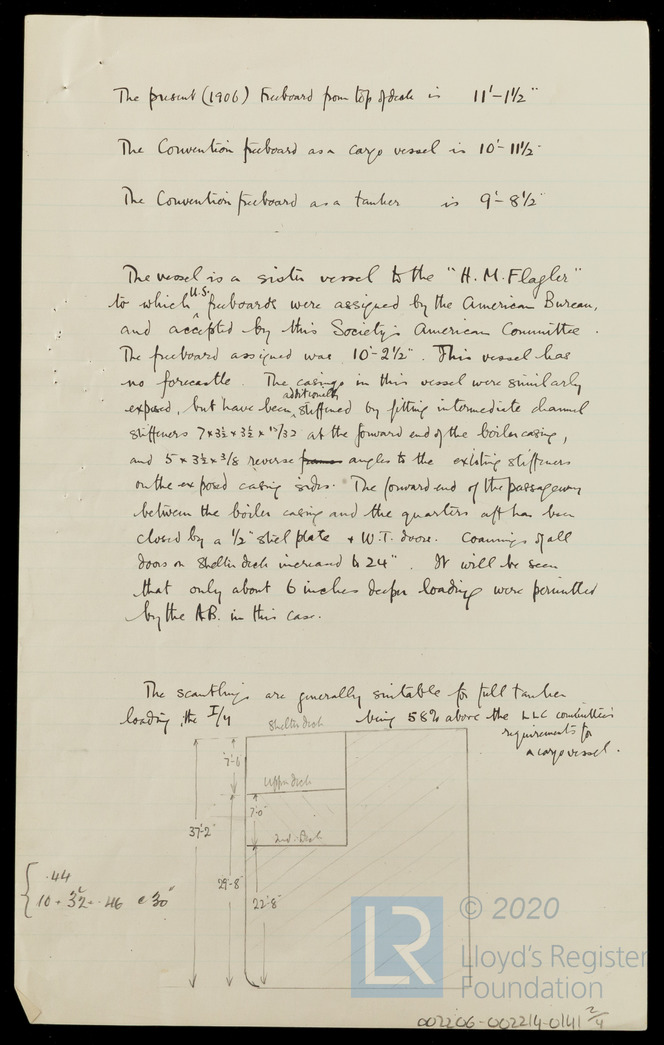 The present (1906) Freeboard from top of deck is 11'-1½"
The Convention freeboard as a cargo vessel is 10'-11½"
The Convention freeboard as a tanker is 9'-8½"
The vessel is a sister vessel to the "H.M. Flagler"
to which U.S. freeboards were assigned by the American Bureau,
and accepted by this Society's American Committee.
The freeboard assigned was 10'-2½". This vessel has
no forecastle. The casings in this vessel were similarly
exposed, but have been additionally stiffened by fitting intermediate channel
stiffeners 7 x 3½ x 3½ x /32 at the forward end of the boiler casing,
and 5 x 3½ x 3/8 reverse frames angles to the existing stiffeners
on the exposed casing sides. The forward end of the passageway
between the boiler casing and the quarters aft has been
closed by a ½" steel plate & W.T. doors. Coamings of all
doors on Shelter deck increased to 24". It will be seen
that only about 6 inches deeper loading were permitted
by the A.B. in this case.
The scantlings are generally suitable for full tanker
loading, the I/y being 58% above the LLC committee's
requirements for
a cargo vessel.
Shelter deck
7'-6"
Upper deck
7'-0"
2nd Deck
37'-2"
29'-8"
22'-8"
.44
10 + 32 = .46 @ 30"
LR
© 2020
Lloyd's Register
Foundation
002206-002214-0141 2/4